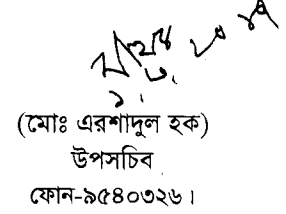 (মোঃ এরশাদুল হক)
উপসচিব
ফোন-৯৫৪০৩২৬।